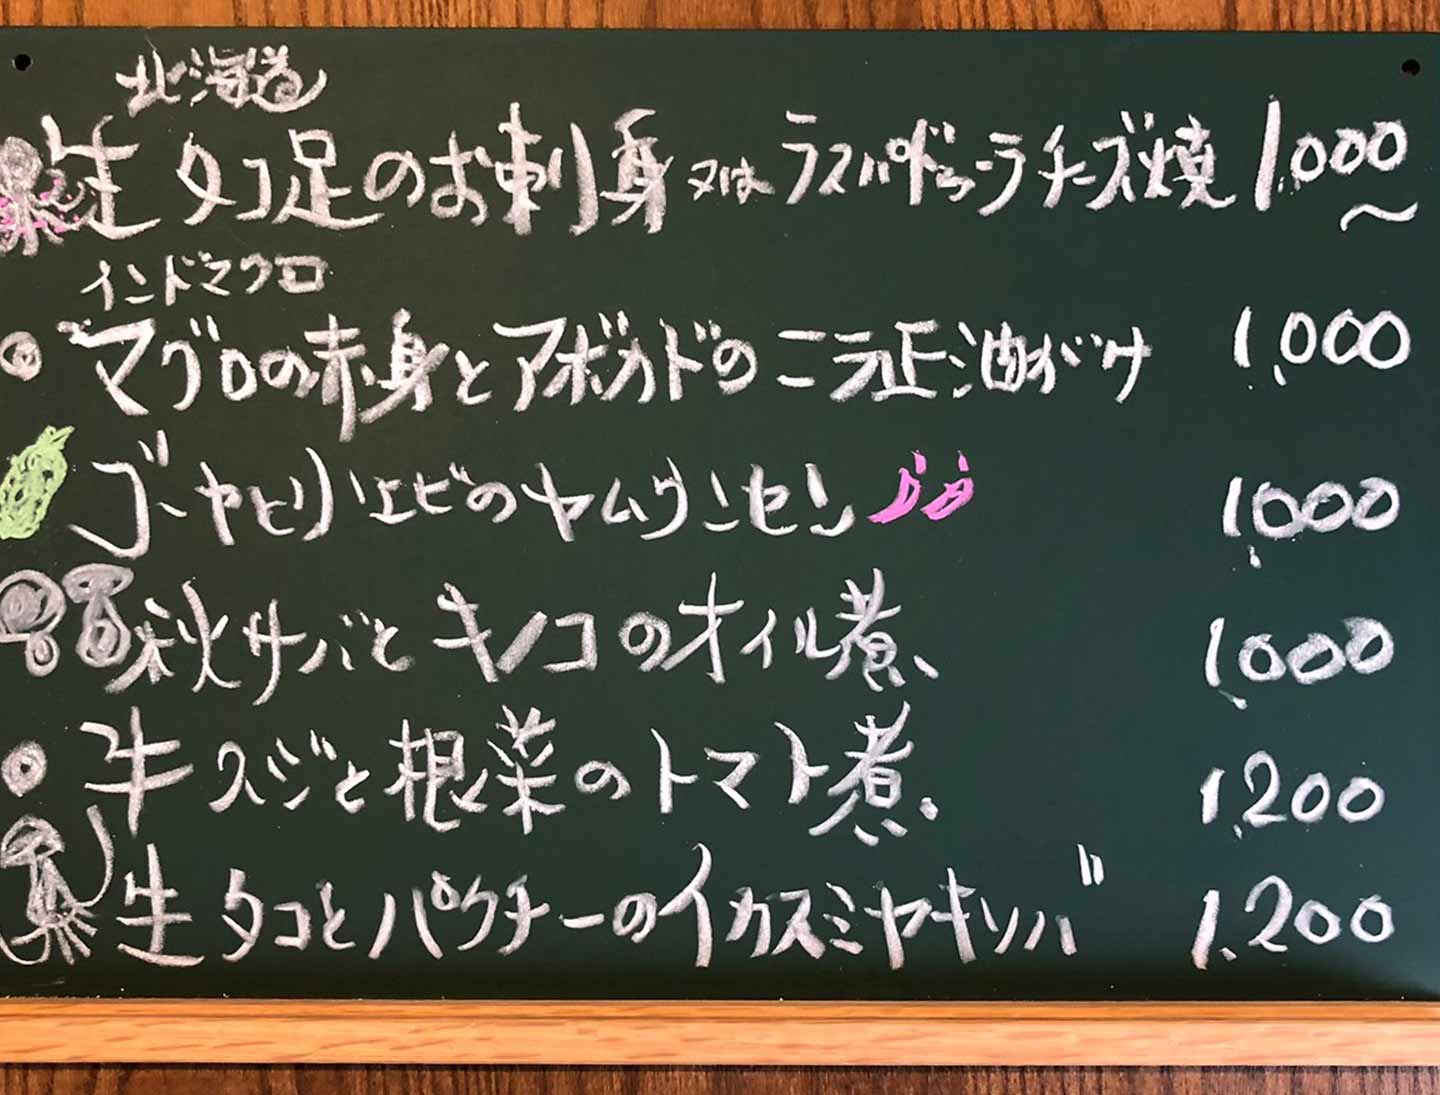 北海道
生タコ足のお刺身又はラスパドゥーラチーズ焼 1,000〜
インドマグロ
マグロの赤身とアボカドのニラ正油がけ 1,000
ゴーヤとリエビのヤムウンセン 1,000
秋サバとキノコのオイル煮、 1,000
牛スジと根菜のトマト煮、 1,200
生タコとパクチーのイカスミヤキソバ 1,200